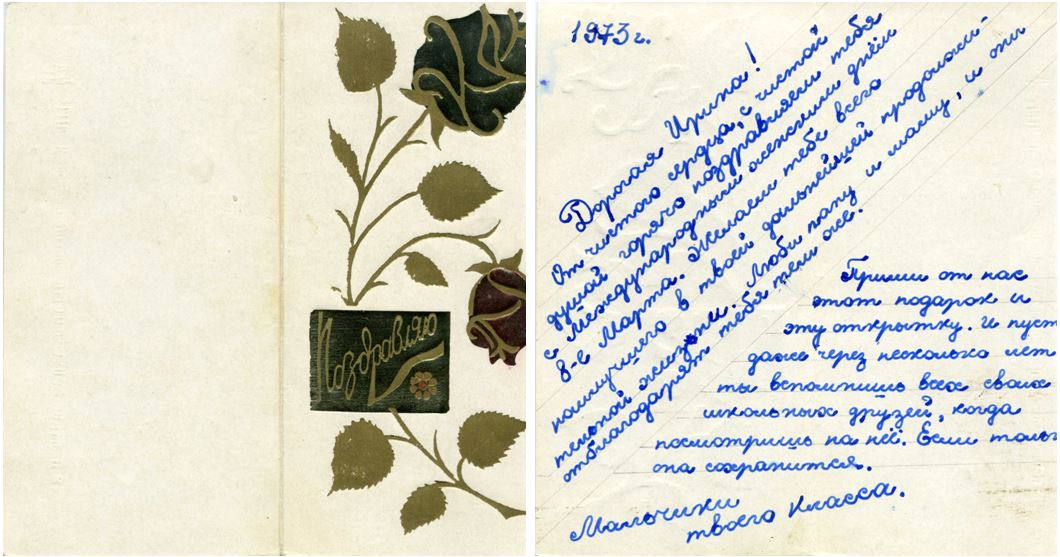 Поздравляю
1973 г.
Дорогая Ирина!
От чистого сердца, с чистой
душой горячо поздравляем тебя
с Международным женским днём
8-е Марта. Желаем тебе всего
наилучшего в твоей дальнейшей продолжи-
тельной жизни. Люби папу и маму, и они
отблагодарят тебя тем же.
Прими от нас
этот подарок и
эту открытку. И пуст
даже через несколько лет
ты вспомнишь всех своих
школьных друзей, когда
посмотришь на неё. Если тольк
она сохранится.
Мальчики
твоего класса.